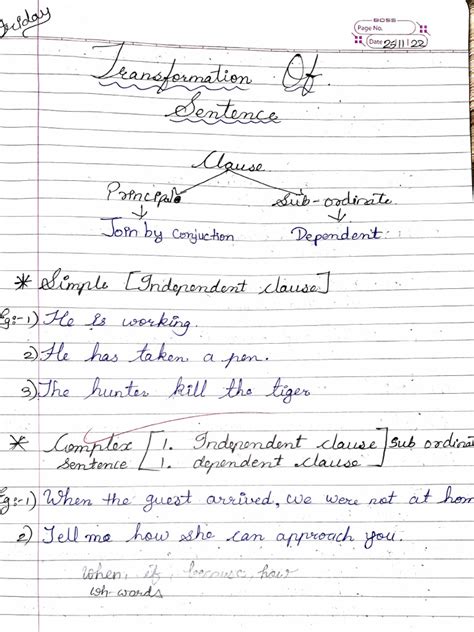 Friday
BOSS
Page No.
Date 25/11/22
Transformation Of
Sentence
Clause
Principle Sub-ordinate
Join by conjuction Dependent
* Simple [Independent clause]
Eg:-1) He is working.
2) He has taken a pen.
3) The hunter kill the tiger
* Complex sentence [1. Independent clause] Sub ordina
[1. dependent clause]
Eg:-1) When the guest arrived, we were not at hom
2) Tell me how she can approach you.
When, if, because, how
wh-words